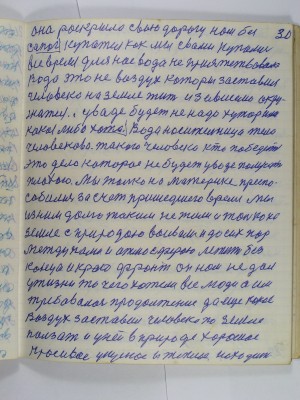 она раскрыло свою дорогу нам бы 30
самой купатся как мы сваим купании
все время для нас вода не приятствовала
Вода это не воздух которы заставил
человека на земле жить и евшись
у воде будет не надо
какой либо хата. Вода носительница тела
человекова. такого человека кто победит
это дело которое не будет у воде
плохою. Мы только на материке приспо
собились за счет пришедшего время мы
из ним долго таким не жили и только на
земле с природаю воевали и до сих пор
между нами и атмосферою лежить без
конца и края фронт он нам не дал
у жизни то чего хотели все люди а им
требовался продовжение да еще какое
Воздух заставил человека по земле
ползать и у ней в природе хорошое
красивое у теплое находить